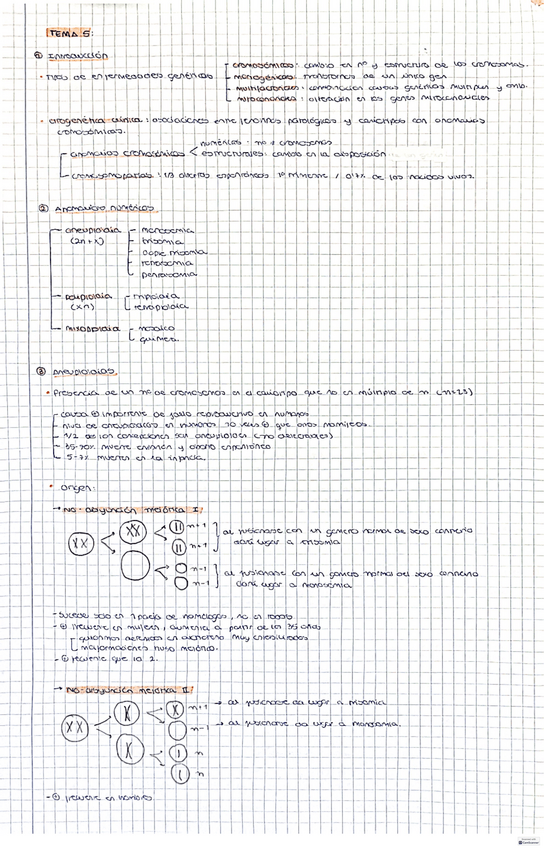 TEMA 5:
① Introducción
cromosómicos: cambio en nº y estructura de los cromosomas.
• Tipos de enfermedades genéticas
monogénicas: trastornos de un único gen
multifactoriales: combinación causas genéticas múltiples y amb.
mitocondriales: alteración en los genes mitocondriales
• citogenética clínica: asociaciones entre fenotipos patológicos y cariotipos con anomalías
cromosómicas.
numéricas: nº cromosomas
anomalías cromosómicas < estructurales: cambio en la disposición
cromosomopatías: 1/3 abortos espontáneos 1º trimestre / 0'7% de los nacidos vivos.
② Anomalías numéricas
aneuploidía
(2n + x)
monosomía
trisomía
doble trisomía
tetrasomía
pentasomía
poliploidía
(xn)
triploidía
tetraploidía
mixoploidía
mosaico
quimera
③ Aneuploidías
• Presencia de un nº de cromosomas en el cariotipo que no es múltiplo de n (n=23)
causa ⊕ importante de fallo reproductivo en humanos
nivel de aneuploidías en humanos 10 veces ⊕ que otros mamíferos.
1/2 de las concepciones son aneuploides (no detectables)
muerte embrión y aborto espontáneo
mueren en la infancia.
• Origen:
→ No-disyunción meiótica I/
XX
XX
n+1
n+1
al fusionarse con un gameto normal de sexo contrario
dará lugar a trisomía
n-1
n-1
al fusionarse con un gameto normal del sexo contrario
dará lugar a monosomía
- Sucede solo en 1 pareja de homólogos, no en todos
- ⊕ frecuente en mujeres, aumenta a partir de los 35 años
quiasmas
malformaciones huso meiótico.
- ⊕ frecuente que la 2.
→ No-disyunción meiótica II/
XX
X
X
X
n+1 → al fusionarse da lugar a trisomía
n-1 → al fusionarse da lugar a monosomía.
n
n
- ⊕ frecuente en hombres